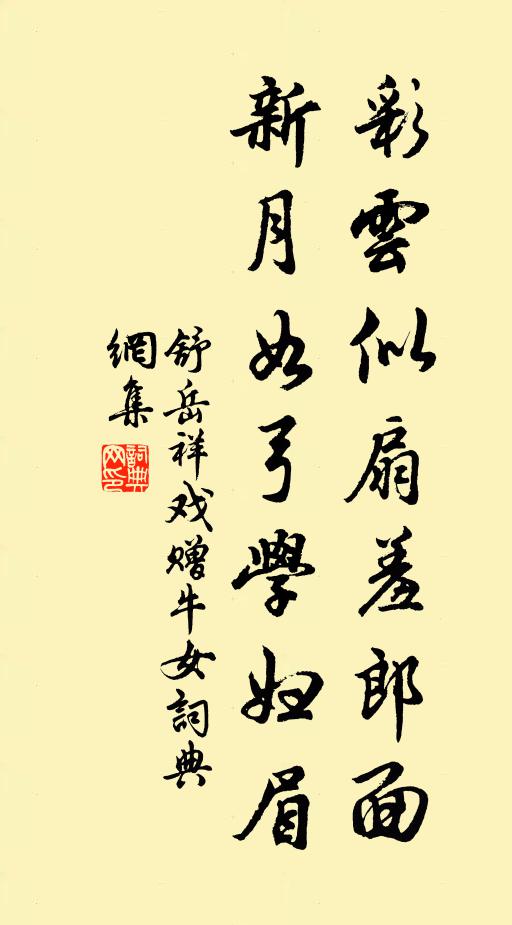 彩雲似扇羞郎面
新月如弓學婦眉
舒岳祥戏赠牛女詞典
網集
詞典網印